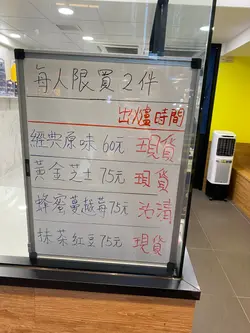 每人限買2件
出爐時間
經典原味 60元 現貨
黃金芝士 75元 現貨
蜂蜜蔓越莓 75元 沽清
抹茶紅豆 75元 現貨